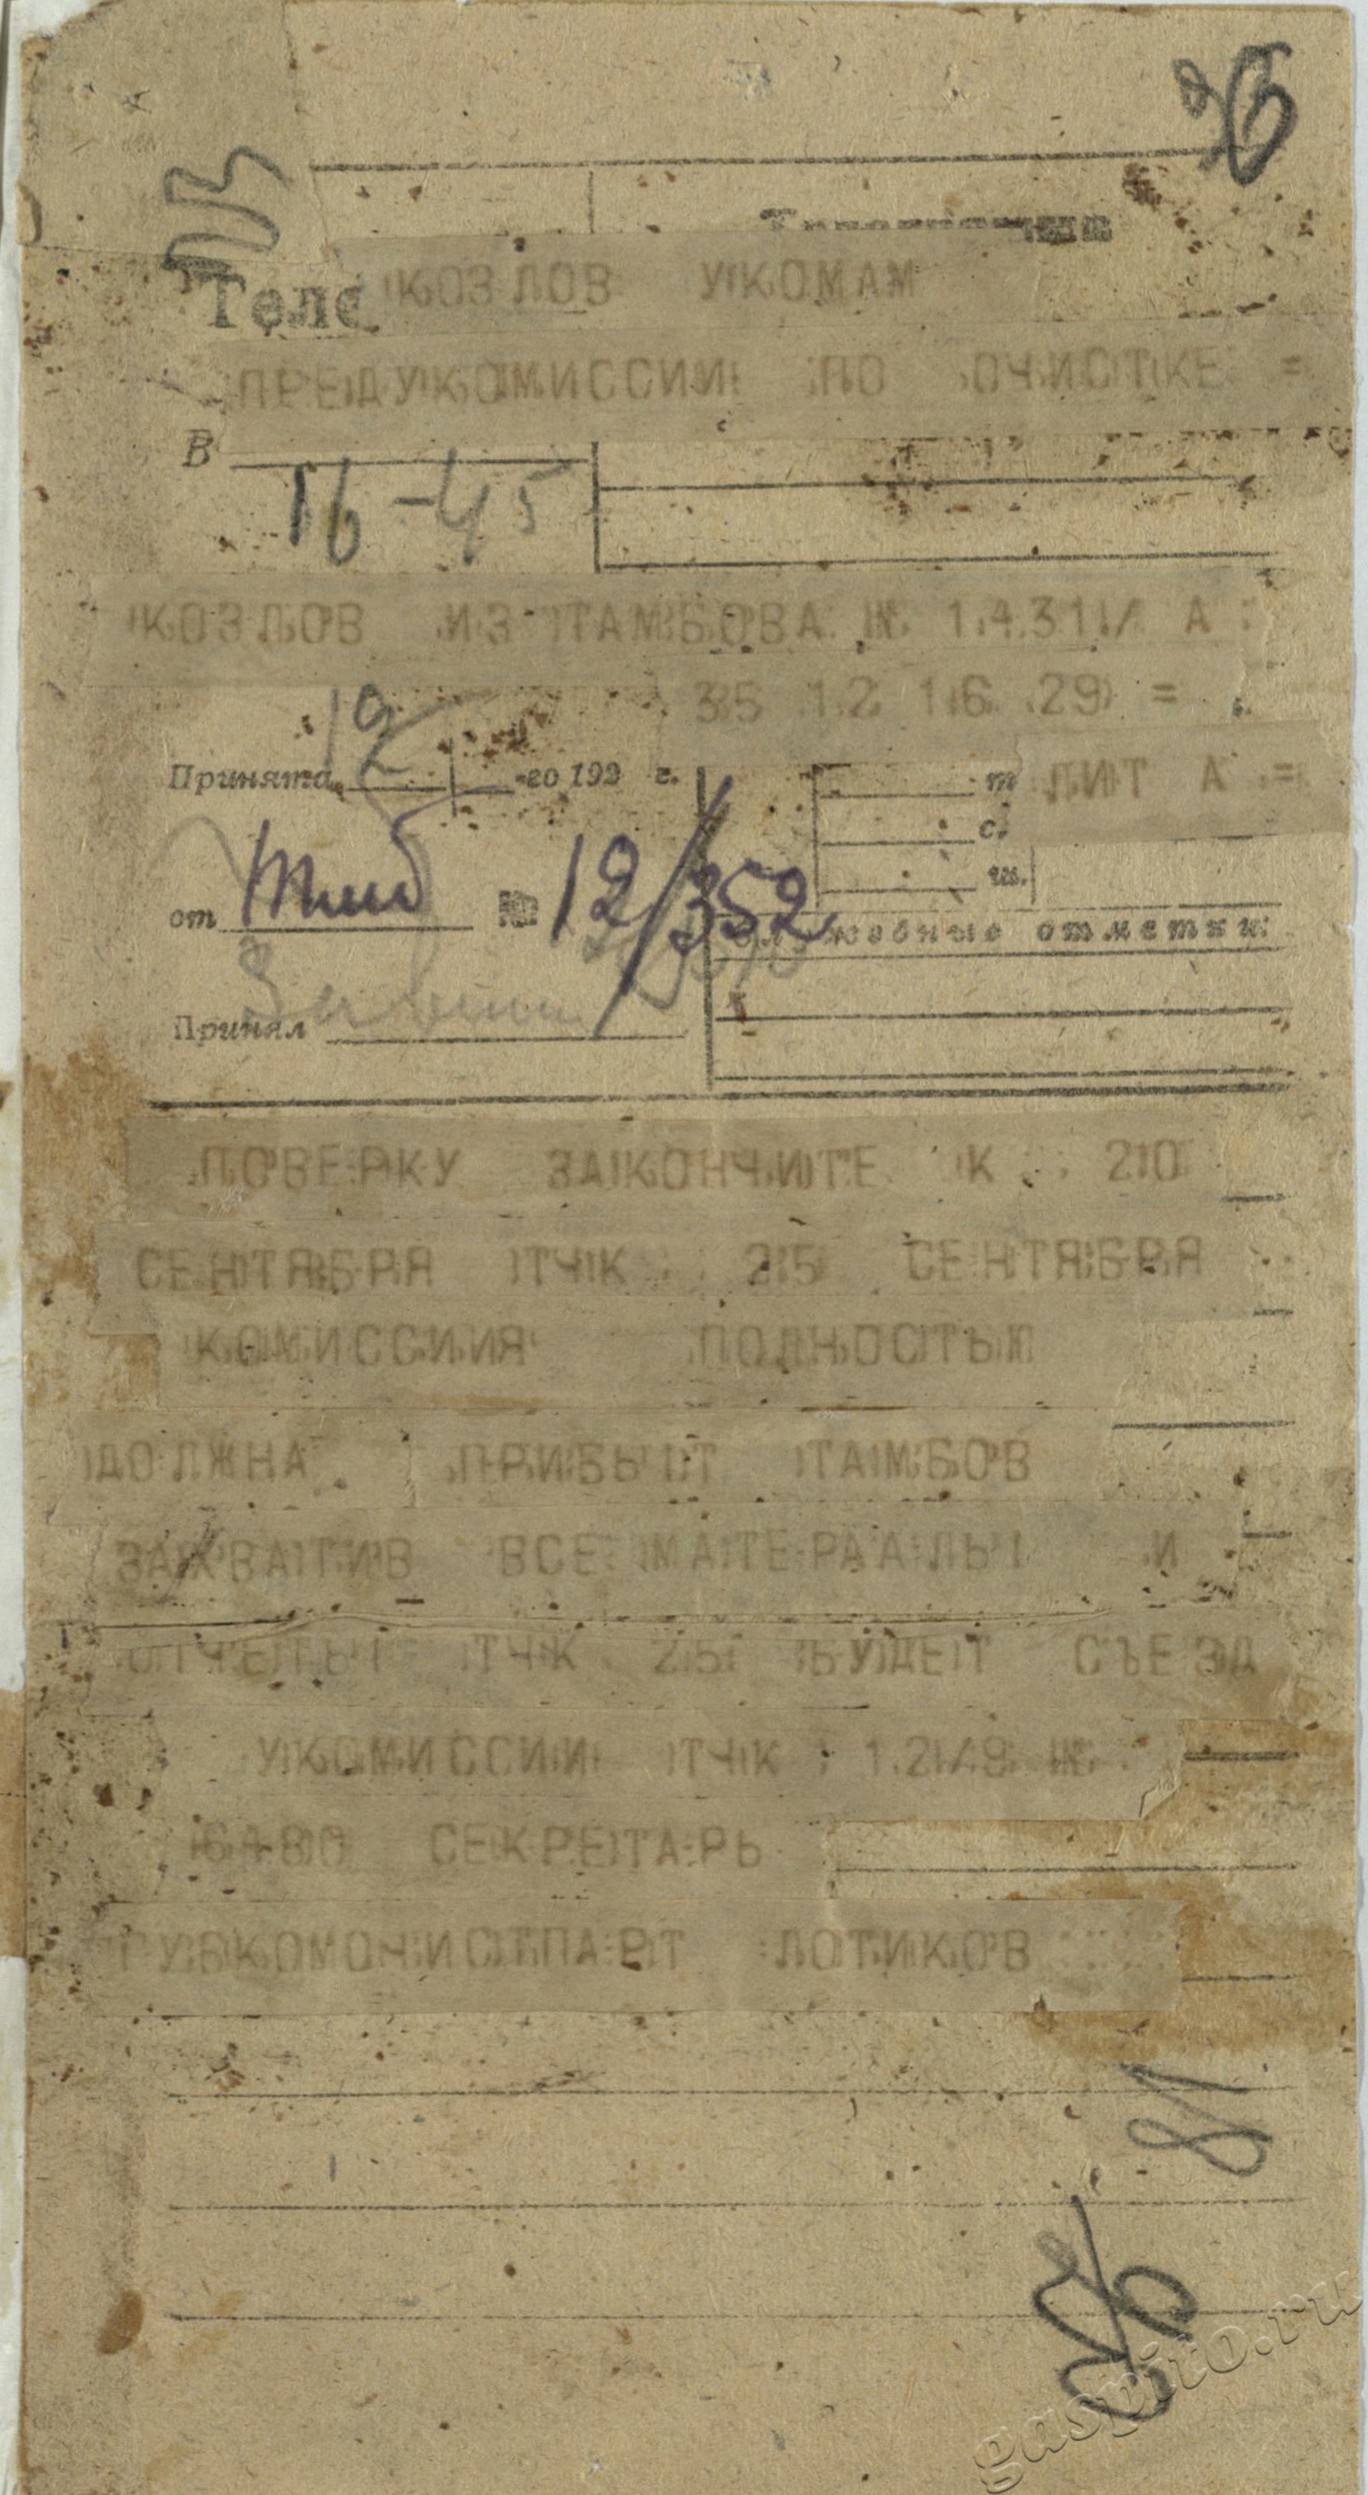 Теле
КОЗЛОВ УКОМАМ
ПРЕДУКОМИССИИ ПО ОЧИСТКЕ =
В
16-45
КОЗЛОВ ИЗ ТАМБОВА № 1431/ А
35 12 16 29 =
12
Принята -го 192 г. т ЛИТ А =
с.
ш.
от Тмб № 12/352
отметки:
Принял
ПОВЕРКУ ЗАКОНЧИТЕ К 20
СЕНТЯБРЯ ТЧК 25 СЕНТЯБРЯ
КОМИССИЯ ПОЛНОСТЬЮ
ДОЛЖНА ПРИБЫТ ТАМБОВ
ЗАХВАТИВ ВСЕ МАТЕРААЛЫ И
ОТЧЕТЫ ТЧК 25 БУДЕТ СЪЕЗД
УКОМИССИИ ТЧК 12/9 №
СЕКРЕТАРЬ
ГУБКОМОЧИСТПАРТ ЛОТИКОВ
gaspito.ru